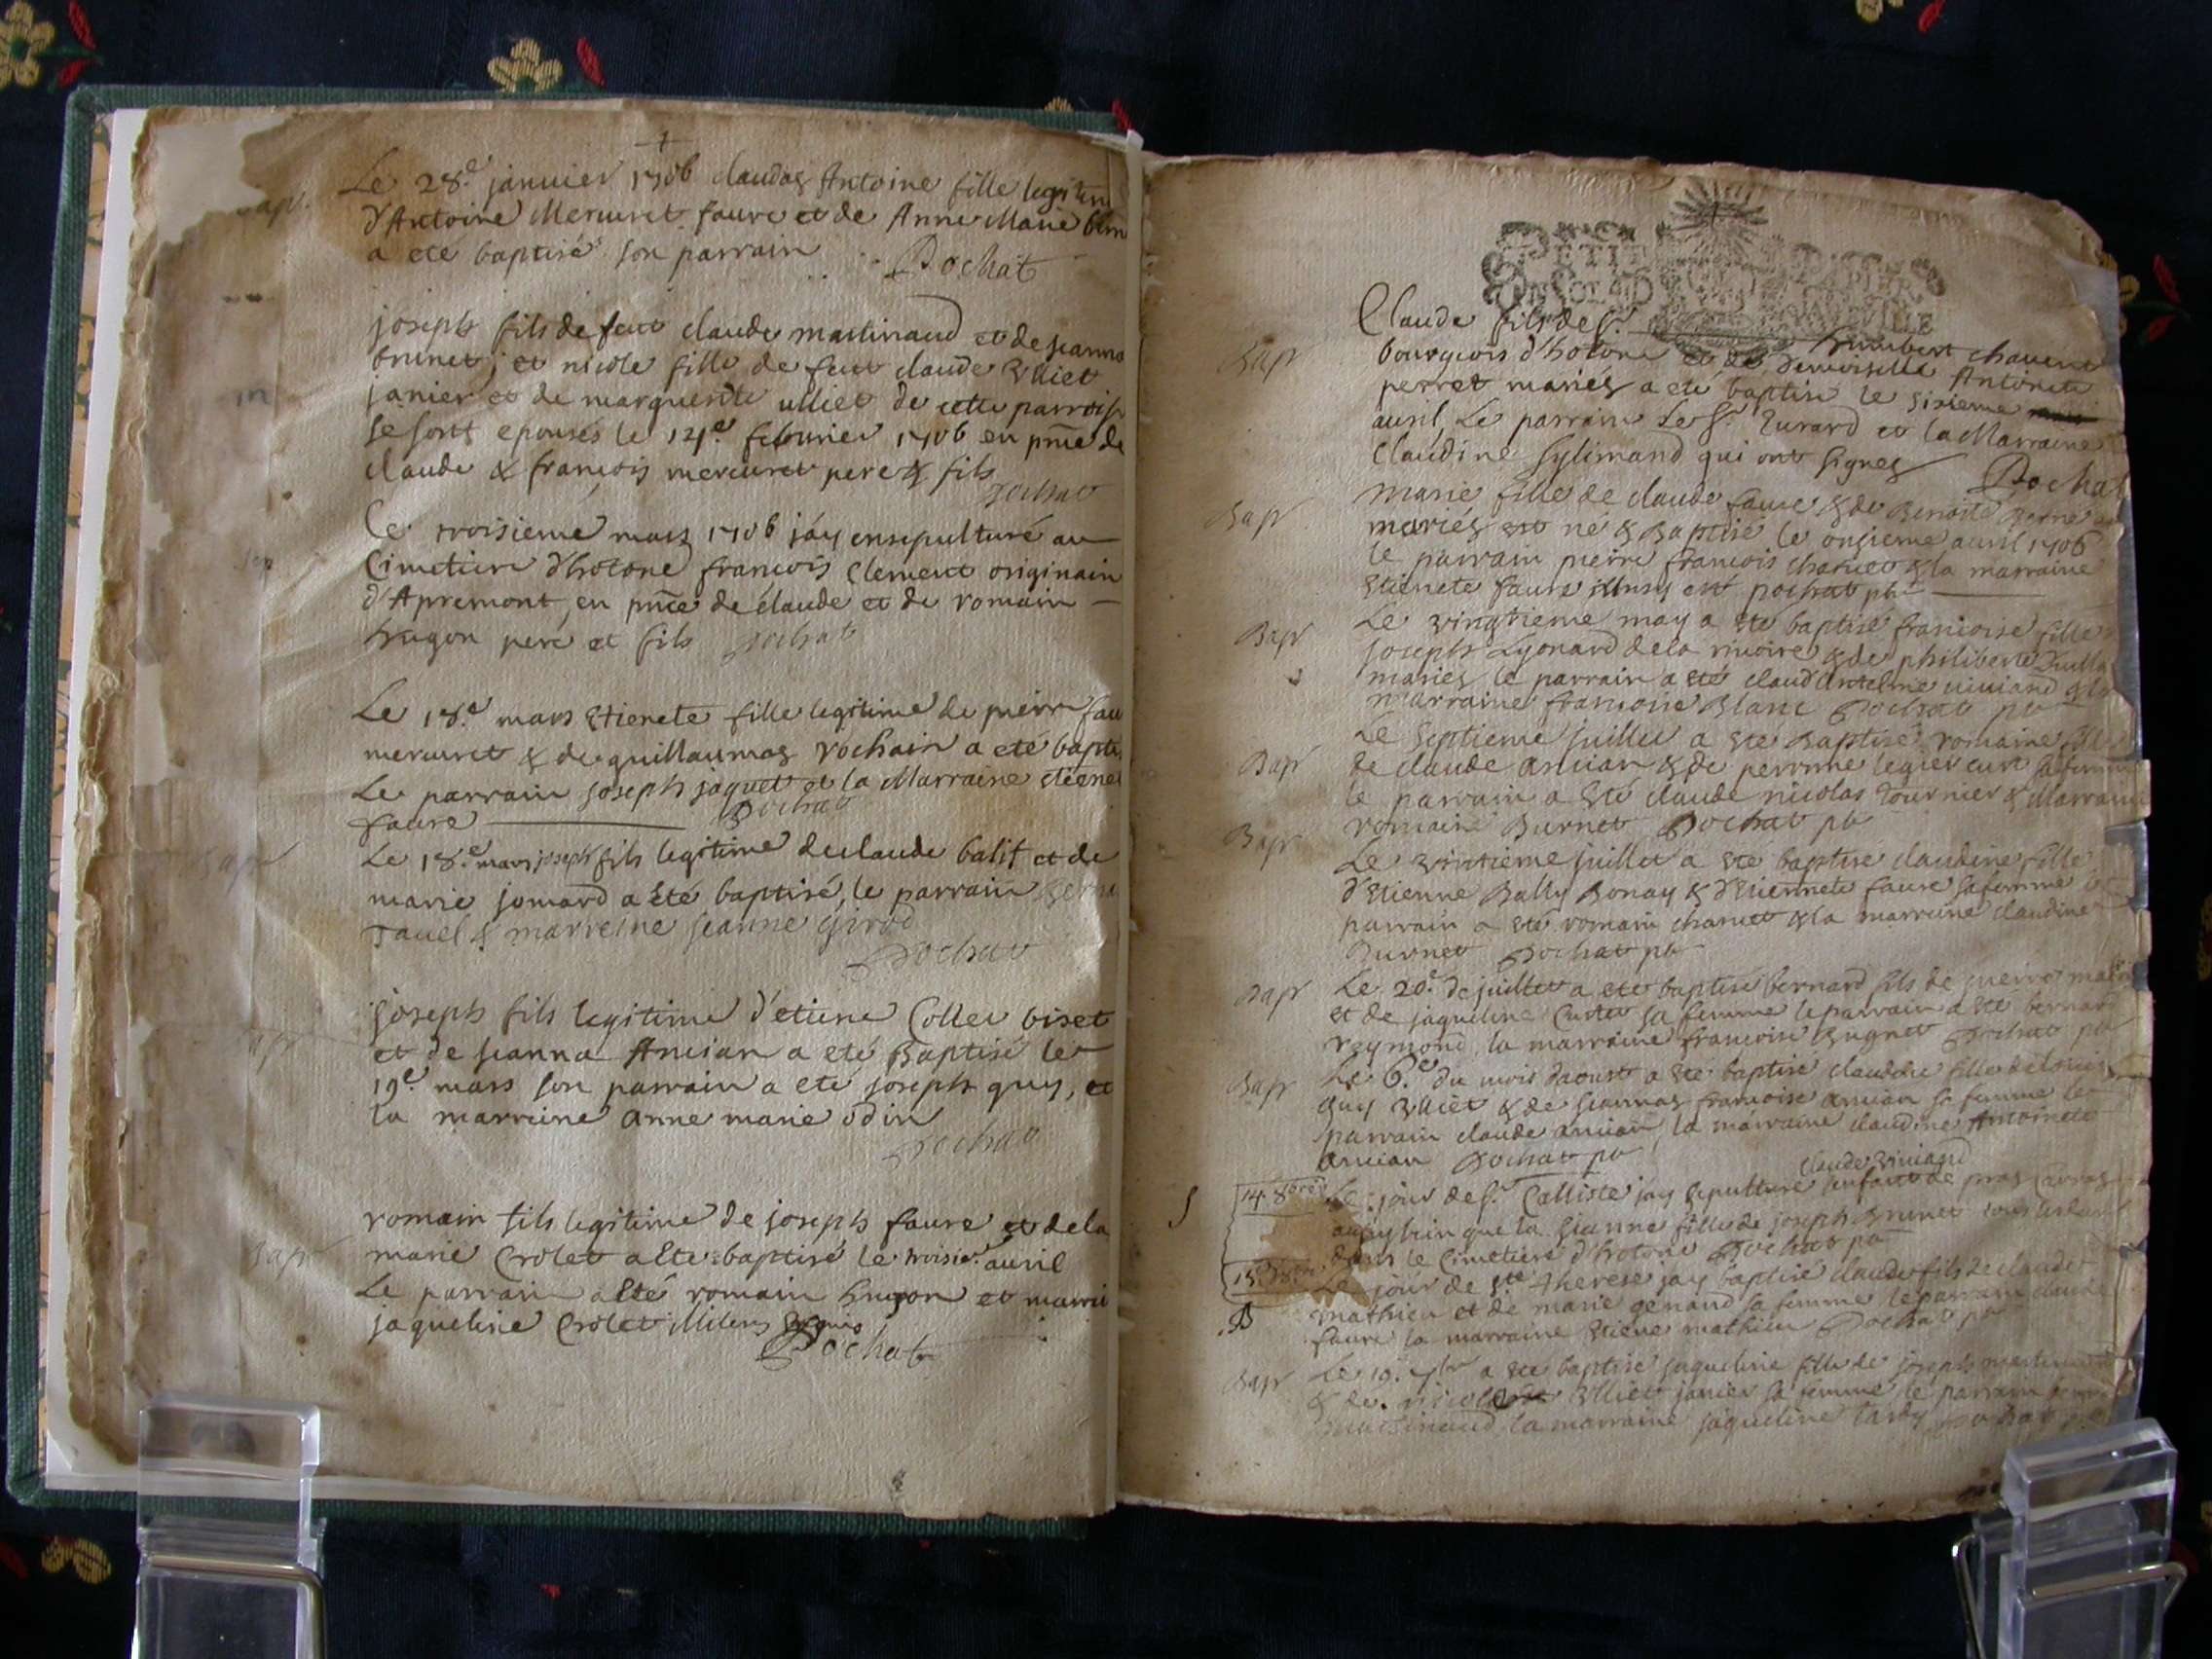 Bap.
Le 28.e janvier 1706 claudas Antoine fille legitim
d'Antoine Mercuret faure et de Anne Marie
a eté baptisé son parrain
Pochat
joseph fils de feut claude martinaud et de jeanna
brunet; et nicole fille de feut claude Vlliet
janier et de marguerite ulliet de cette parroisse
se sont epousés le febvrier 1706 en pnce de
claude & françois mercuret pere & fils
pochat
Sep
Le troisieme mars 1706 j'ay ensepulturé au
Cimetiere d'hotone françois Clement originair
d'Apremont, en pnce de claude et de romain
hugon pere et fils pochat
Le 18.e mars Etienete fille legitime de pierre fau
mercuret & de guillaumas rochain a eté bapti
Le parrain joseph jaquet et la Marraine etiene
faure pochat
Bap
Le 18.e mars joseph fils legitime de claude balif et de
marie jomard a eté baptisé, le parrain
Tavel & marreine jeanne girod
Pochat
Bap
joseph fils legitime d'etiene Collet biset
et de jeanna Ancian a eté Baptisé le
19e mars son parrain a eté joseph guy, et
la marreine anne marie odin
Pochat
Bap
romain fils legitime de joseph faure et dela
marie Crolet a eté baptisé le troisie. avril
Le parrain a eté romain hugon et marrei
jaqueline Crolet
Pochat
Bap
Claude fils de sr. humbert chavent
bourgeois d'hotone et de demoiselle Antoinete
perret mariés a eté baptisé le sixieme
avril, Le parrain Le sr. Turard et la Marraine
Claudine Sylimand qui ont signes Pochat
Bap
Marie fille de claude faure & de Benoite
mariés est né & Baptisé le onzieme avril 1706
le parrain pierre francois charvet & la marraine
Etienete faure pochat pb
Bap
Le vingtieme may a eté baptisé françoise fille
joseph Lyonard dela rivoire & de philiberte
mariés le parrain a eté claud'Antelme viviand & la
marraine francoise Blanc Pochat pb
Bap
Le septieme juillet a ete Baptisé romaine fille
de claude ancian & de perrine legier cure sa femme
le parrain a eté claude nicolas Tournier & Marraine
romaine Burnet Pochat pb
Bap
Le vintieme juillet a ete baptisé claudine fille
d'Etienne Bally Bonay & d'Etiennete faure sa femme le
parrain a eté romain charvet & la marraine claudine
Burnet Pochat pb
Bap
Le 20.e de juillet a ete baptisé bernard fils de pierre
et de jaqueline Custet sa femme le parrain a ete bernard
reymond, la marraine francoise hugnet Pochat pb
Bap
Le 6.e du mois daoust a ete baptisé claudine fille
guy Vlliet & de jeannas francoise ancian sa femme le
parrain claude ancian, la marraine claudine Antoinete
ancian Pochat pb
S
14. 8bre
claude viviand
Le jour de s. Calliste jay sepulturé lenfant de
aussy bien que la jeanne fille de joseph Brunet
dans le Cimetiere d'hotone Pochat pb
15. 8bre
B
Le jour de ste therese jay baptisé claude fils de claude
mathieu et de marie genand sa femme le parrain claude
faure la marraine Etiene mathieu Pochat pb
Bap
Le 19. a ete baptisé jaqueline fille de joseph martinaud
& de nicole Vlliet janier sa femme le parrain
martinaud la marraine jaqueline tardy pochat pb